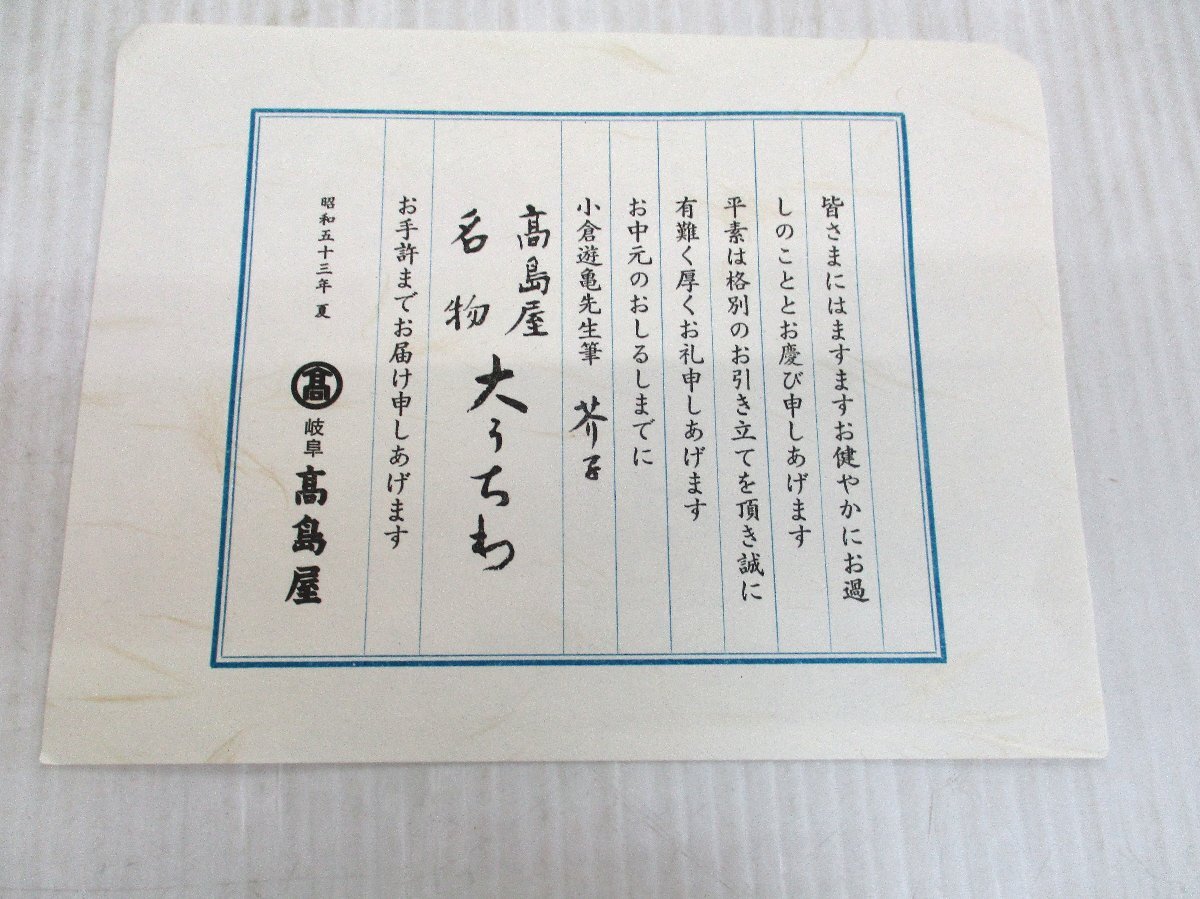 皆さまにはますますお健やかにお過
しのこととお慶び申しあげます
平素は格別のお引き立てを頂き誠に
有難く厚くお礼申しあげます
お中元のおしるしまでに
小倉遊亀先生筆 芥子
髙島屋
名物 大うちわ
お手許までお届け申しあげます
昭和五十三年 夏
髙 岐阜 髙島屋